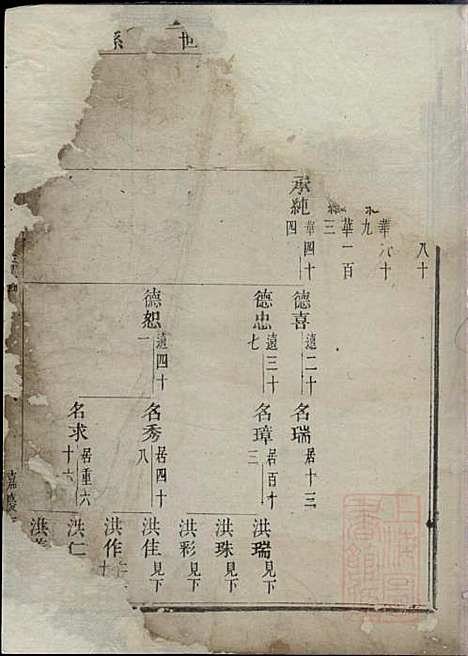 世系
八十
華六十
九
華一百
三
承純 華四十
四
德喜 遠二十
德忠 遠三十
七
德恕 遠四十
一
名瑞 居十三
名璋 居百十
三
名秀 居四十
八
名求 居重六
十六
洪瑞 見下
洪珠 見下
洪彩 見下
洪佳 見下
洪作
十
洪仁
洪